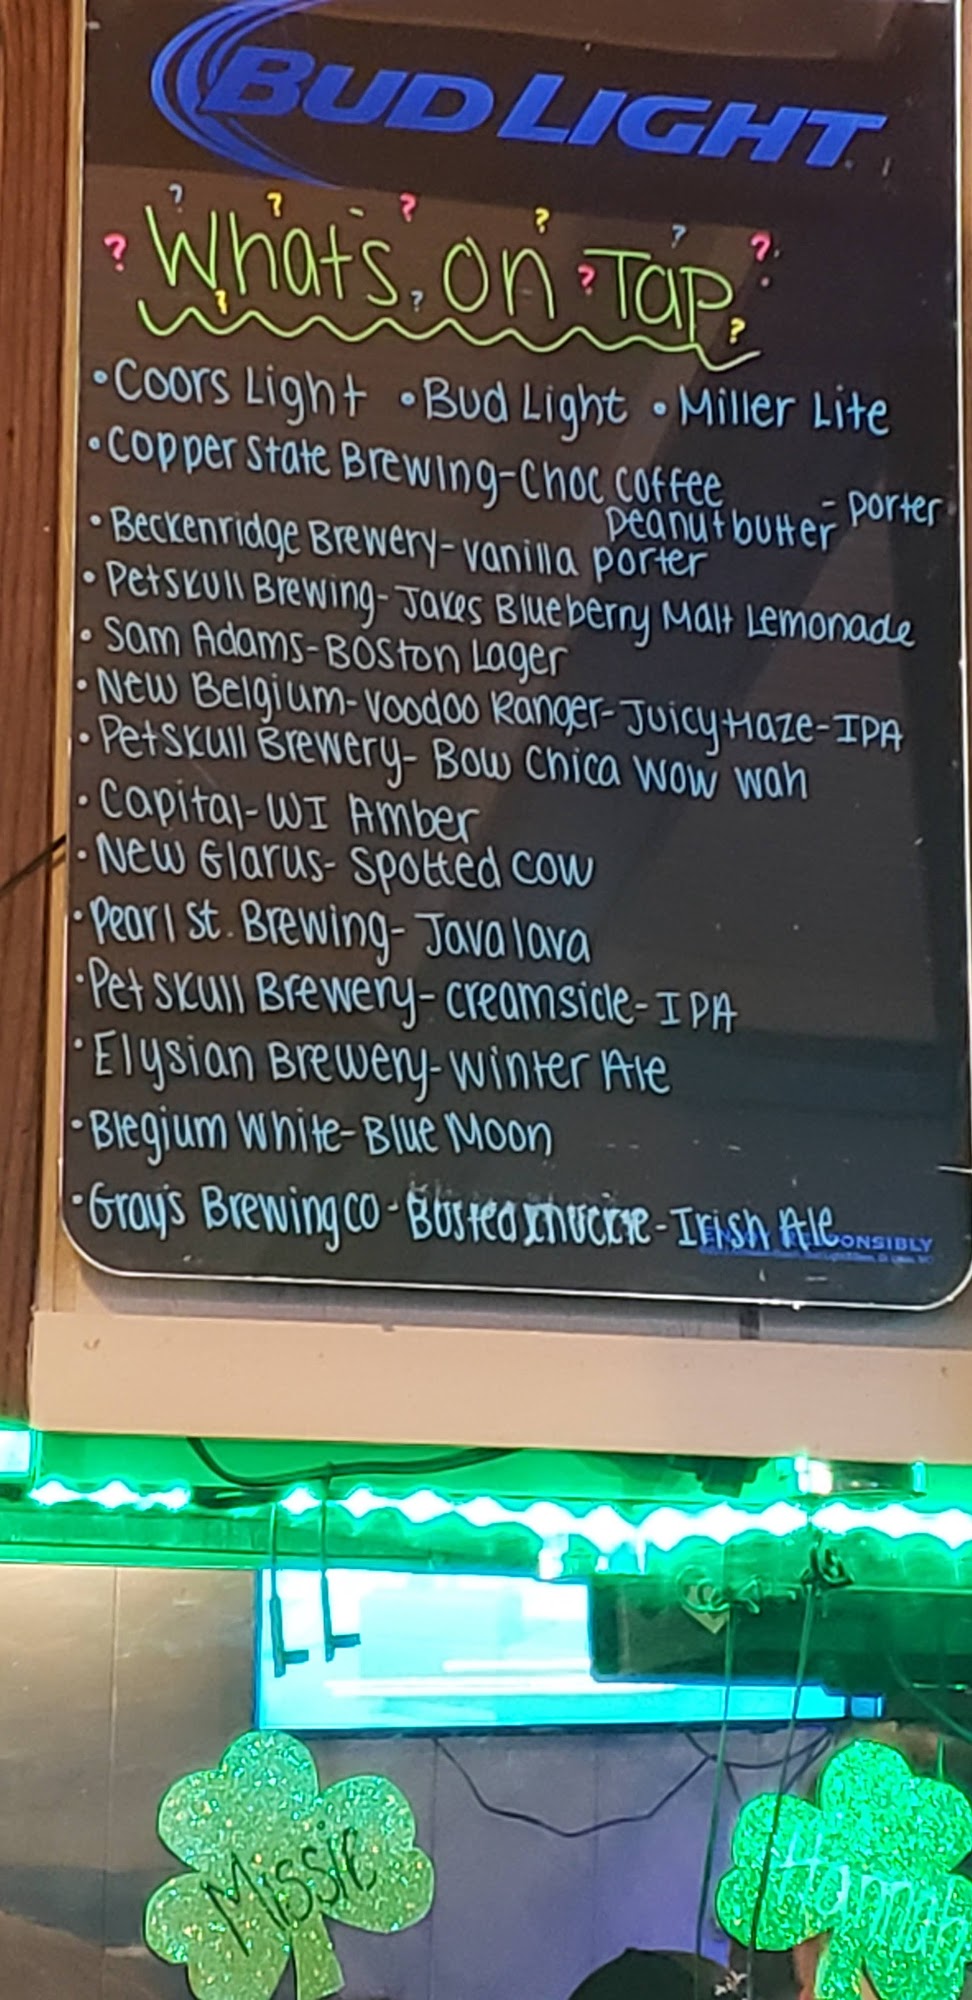 BUD LIGHT
What's on Tap
• Coors Light • Bud Light • Miller Lite
• Copper State Brewing-Choc coffee
peanut butter - porter
• Beckenridge Brewery-vanilla porter
• Petskull Brewing-Jakes Blueberry Malt Lemonade
• Sam Adams-Boston Lager
• New Belgium-Voodoo Ranger-Juicy Haze-IPA
• Petskull Brewery-Bow Chica wow wah
• Capital-WI Amber
• New Glarus-Spotted Cow
• Pearl St. Brewing-Java lava
• Pet skull Brewery-creamsicle-IPA
• Elysian Brewery-Winter Ale
• Blegium White-Blue Moon
• Gray's Brewing co - Busted -Irish Ale
ONSIBLY
Missie
Hannah